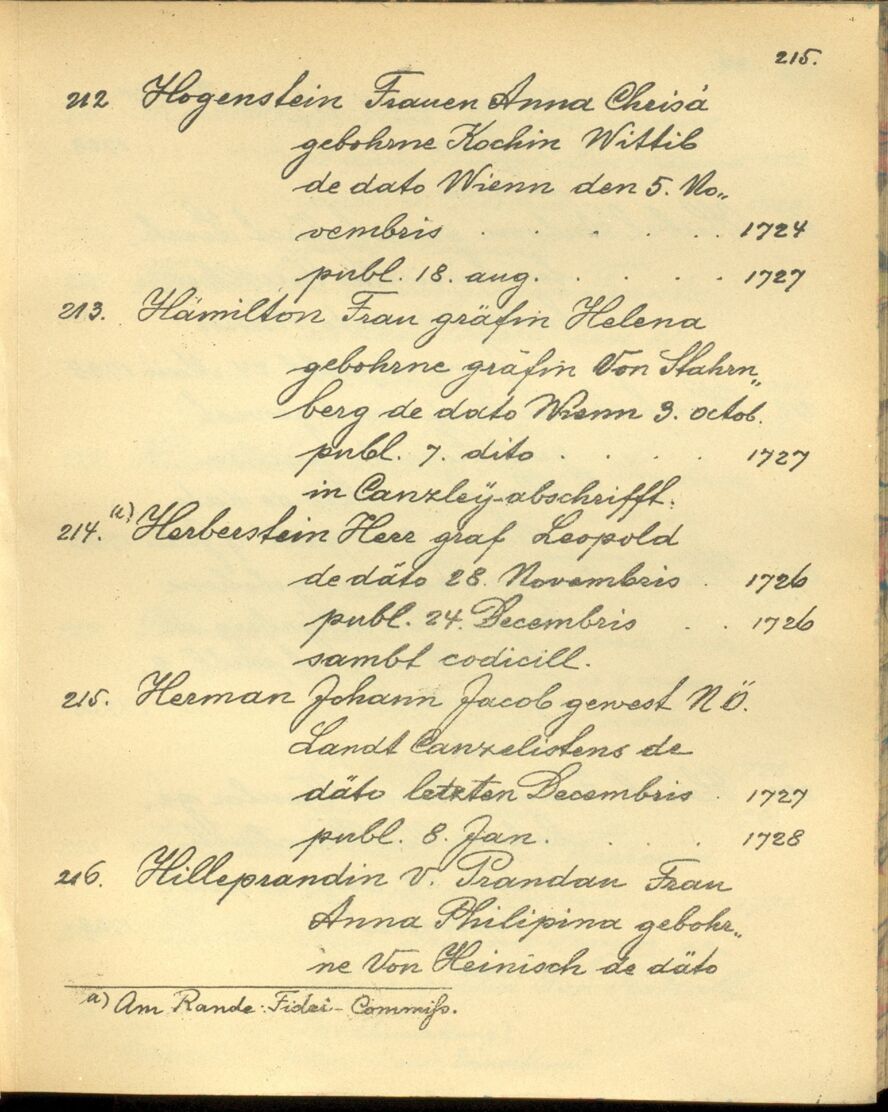 215.
212 Hogenstein Frauen Anna Chrisä
gebohrne Kochin Wittib
de dato Wienn den 5. No„
vembris . . . . . 1724
publ. 18. aug. . . . . 1727
213. Hämilton Frau gräfin Helena
gebohrne gräfin Von Stahrn„
berg de dato Wienn 3. octob.
publ. 7. dito . . . . 1727
in Canzleÿ-abschrifft.
214. a) Herberstein Herr graf Leopold
de däto 28. Novembris . 1726
publ. 24. Decembris . . 1726
sambt codicill.
215. Herman Johann Jacob gewest N Ö.
Landt Canzelistens de
däto letzten Decembris . 1727
publ. 8. Jan. . . . . 1728
216. Hilleprandin v. Prandau Frau
Anna Philipina gebohr„
ne Von Heinisch de däto
a) Am Rande: Fidei-Commiß.